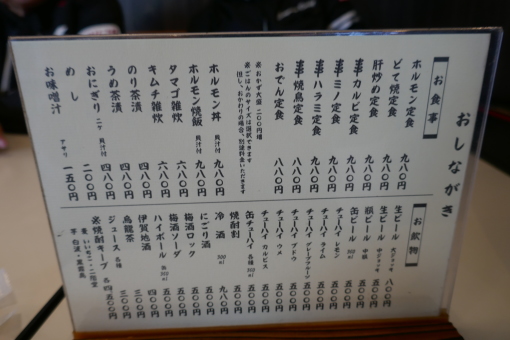 おしながき
お食事
ホルモン定食 九八〇円
どて焼定食 九八〇円
肝炒め定食 九八〇円
串カルビ定食 九八〇円
串ミノ定食 九八〇円
串ハラミ定食 九八〇円
串焼鳥定食 八八〇円
おでん定食 八八〇円
※おかず大盛 二〇〇円増
※ごはんのサイズは選択できます
但し、おかわりの場合、別途料金いただきます
ホルモン丼 貝汁付 九八〇円
ホルモン焼飯 貝汁付 九八〇円
タマゴ雑炊 六八〇円
キムチ雑炊 六八〇円
のり茶漬 四八〇円
うめ茶漬 四八〇円
おにぎり 二ケ 貝汁付
めし 二〇〇円
お味噌汁 アサリ 一五〇円
お飲物
生ビール 大ジョッキ 八〇〇円
生ビール 中ジョッキ 五〇〇円
瓶ビール 中瓶
缶ビール
チューハイ レモン
チューハイ ライム
チューハイ グレープフルーツ
チューハイ ブドウ
チューハイ ウメ
チューハイ カルピス
缶チューハイ 各種
焼酎割 五〇〇円
冷酒 300ml 九八〇円
にごり酒 五〇〇円
梅酒ロック 五〇〇円
梅酒ソーダ 五〇〇円
ハイボール 五〇〇円
伊賀地酒 四〇〇円
烏龍茶 三〇〇円
ジュース 各種 三〇〇円
※焼酎キープ 各四五〇〇円
麦 いいちこ・二階堂
芋 白波・黒霧島